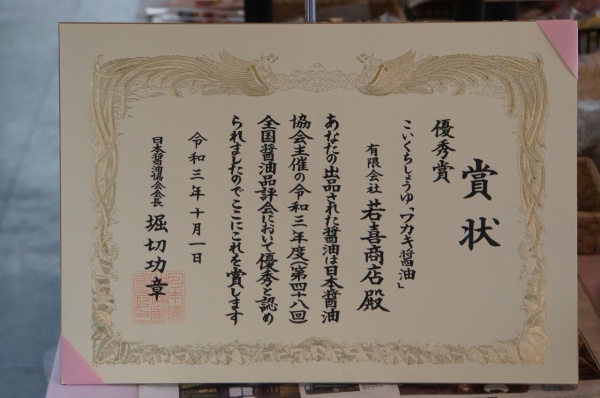 賞状
優秀賞
こいくちしょうゆ「ワカキ醤油」
有限会社 若喜商店殿
あなたの出品された醤油は日本醤油
協会主催の令和三年度(第四十八回)
全国醤油品評会において優秀と認め
られましたのでここにこれを賞します
令和三年十月一日
日本醤油協会会長 堀切功章